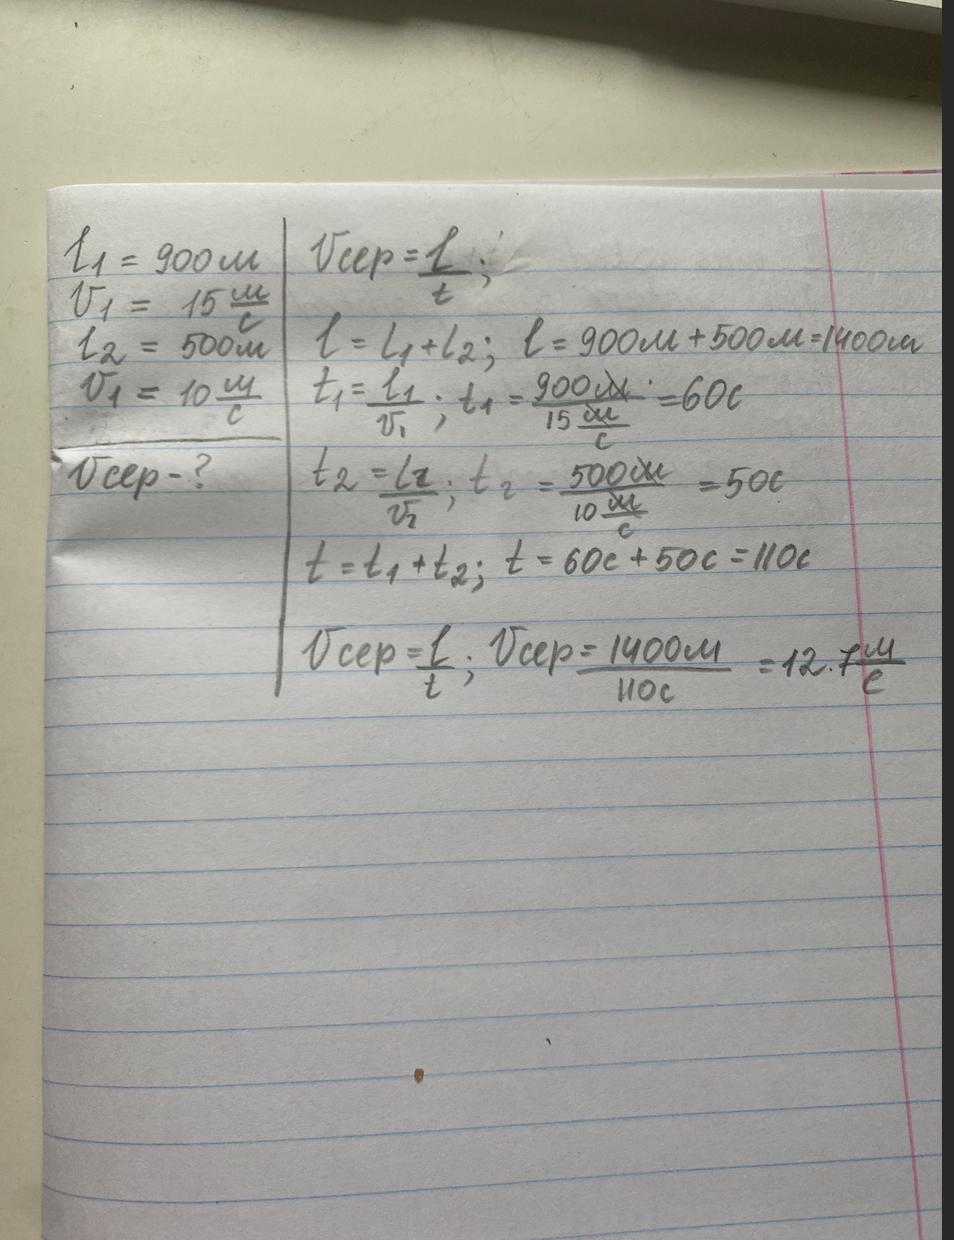 l₁ = 900м
v₁ = 15 м/с
l₂ = 500м
v₁ = 10 м/с
vсер - ?
vсер = l/t;
l = l₁ + l₂; l = 900м + 500м = 1400м
t₁ = l₁/v₁; t₁ = 900м/15 м/с = 60с
t₂ = l₂/v₂; t₂ = 500м/10 м/с = 50с
t = t₁ + t₂; t = 60с + 50с = 110с
vсер = l/t; vсер = 1400м/110с = 12.7 м/с